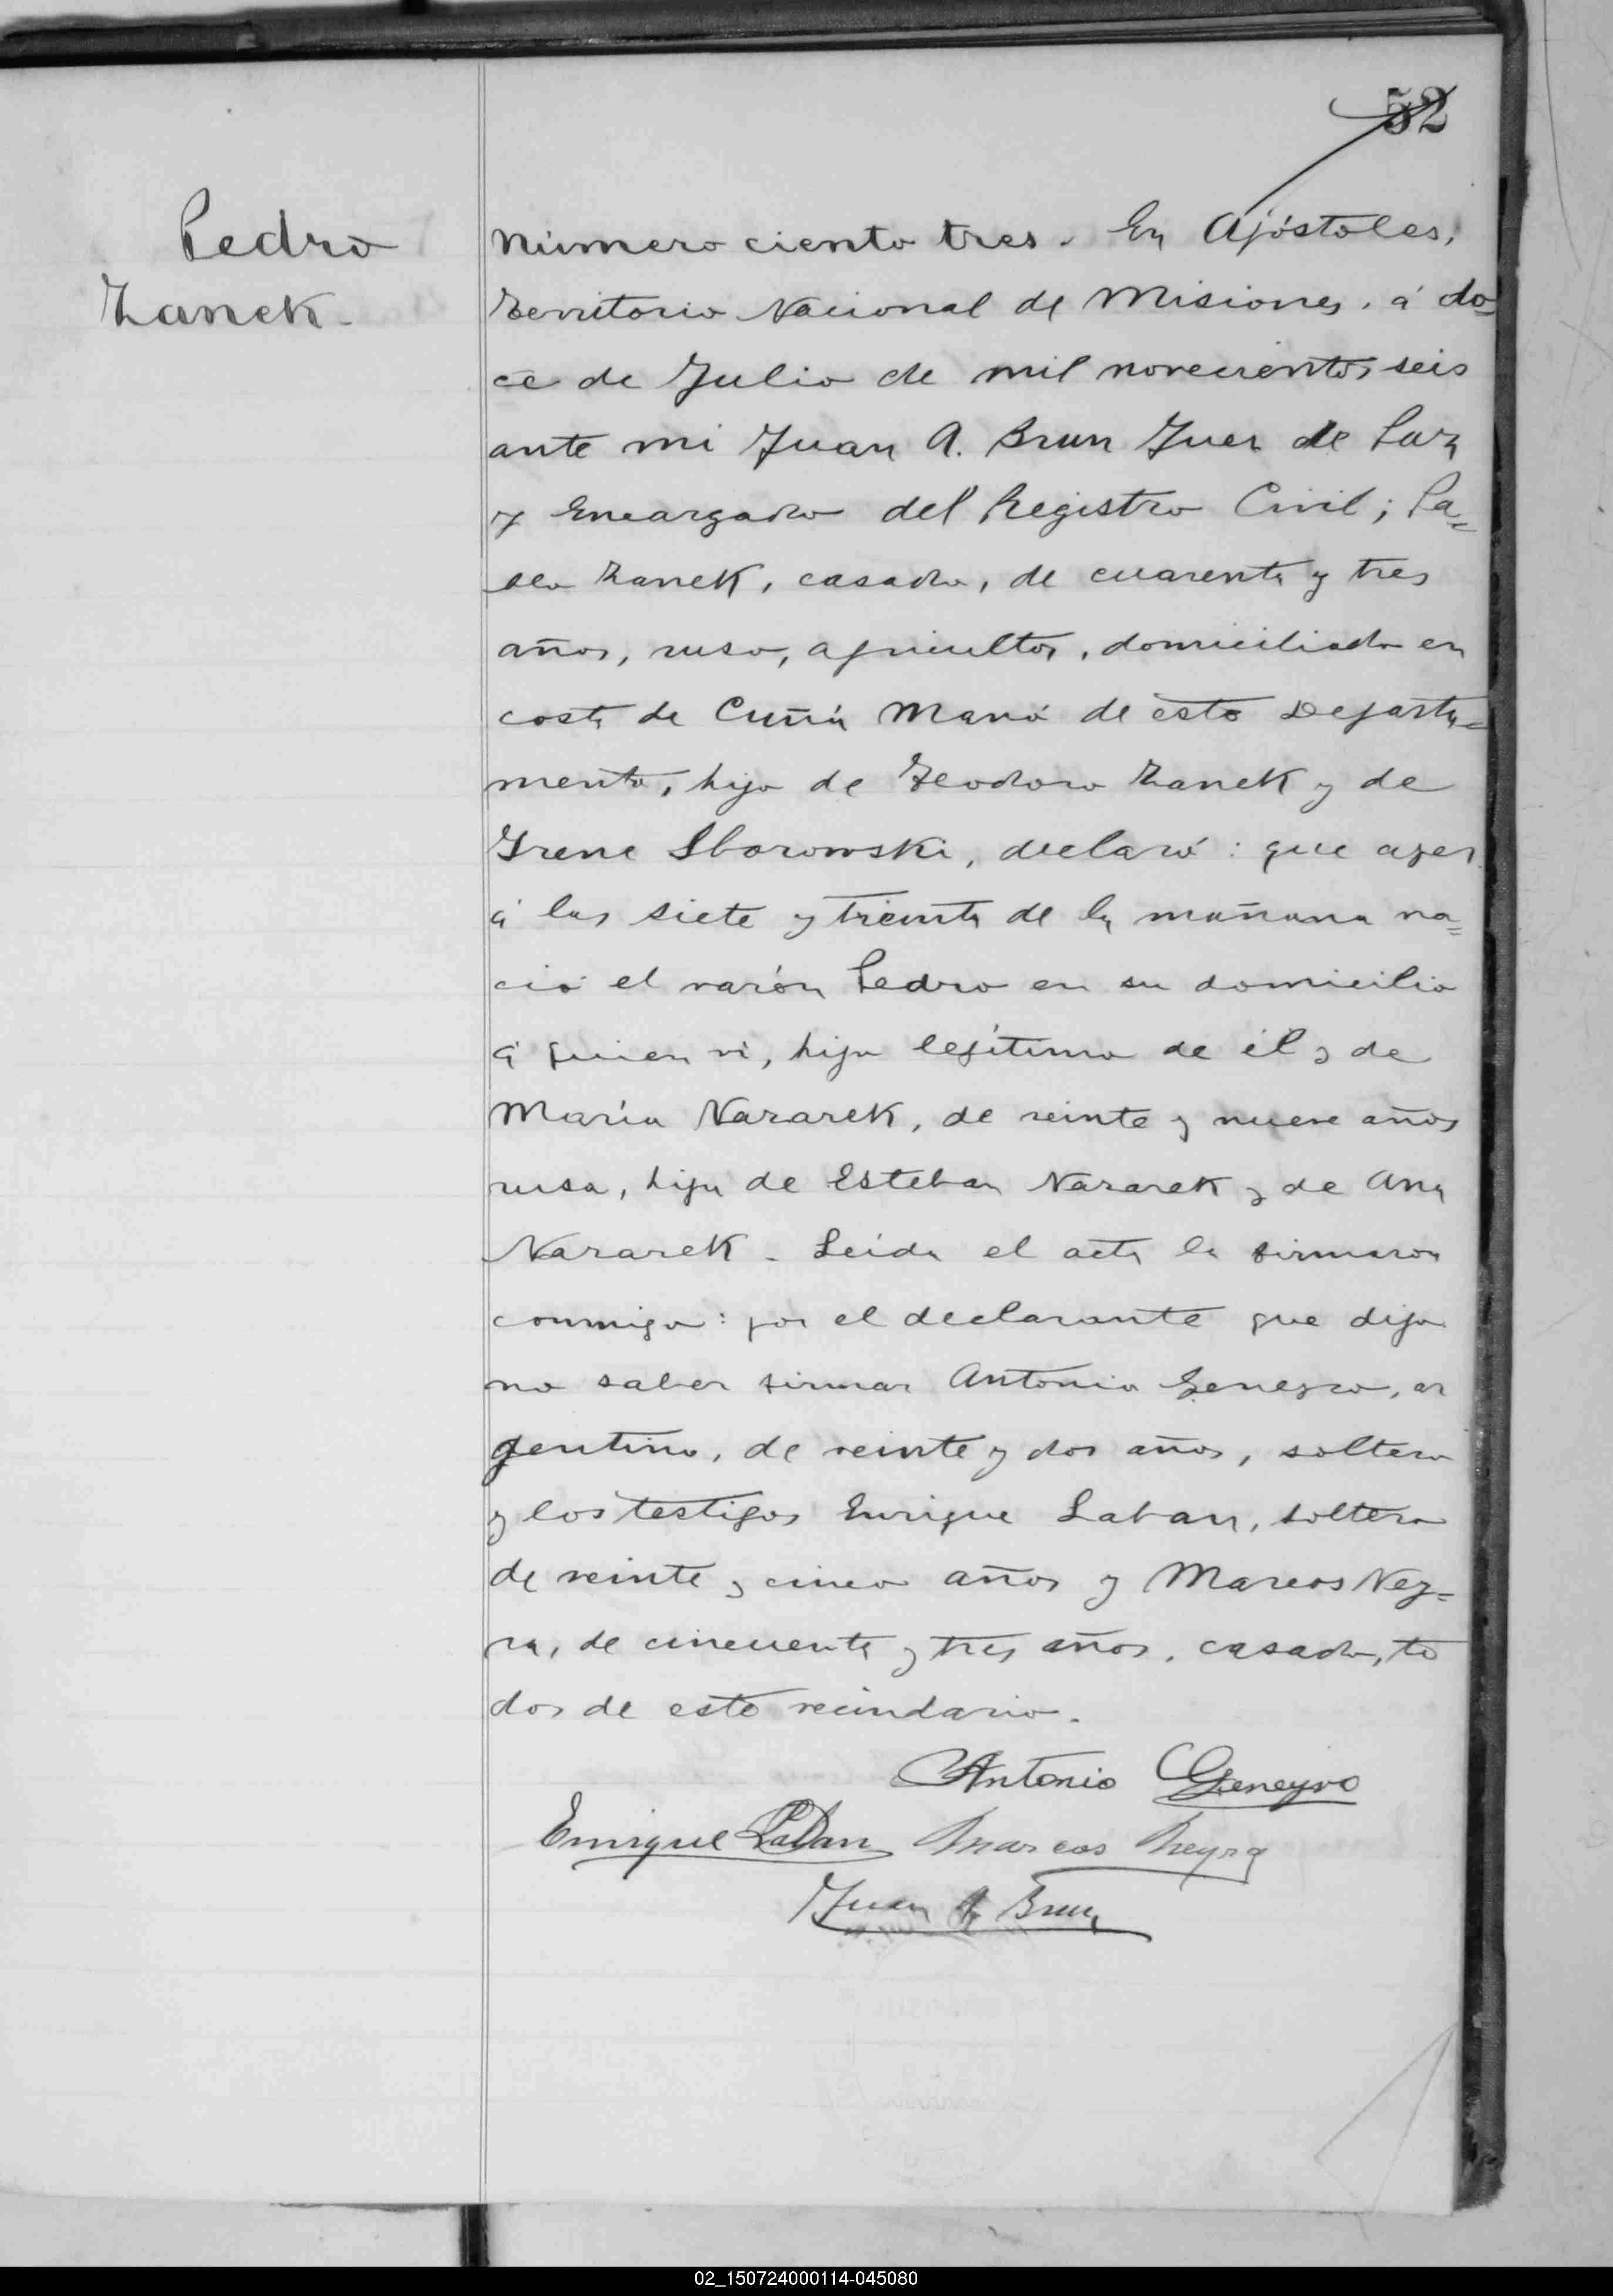 52
Pedro
Zanek.
Número ciento tres. En Apóstoles,
Territorio Nacional de Misiones, á do=
ce de Julio de mil novecientos seis
ante mi Juan A. Brun Juez de Paz
y Encargado del Registro Civil; Pa=
blo Zanek, casado, de cuarenta y tres
años, ruso, agricultor, domiciliado en
costa de Cuñá Manó de este Departa=
mento, hijo de Teodoro Zanek y de
Irene Sborowski, declaró: que ayer
á las siete y treinta de la mañana na=
ció el varón Pedro en su domicilio
á quien vi, hijo legítimo de él y de
María Nazarek, de veinte y nueve años
rusa, hija de Esteban Nazarek y de Ana
Nazarek. Leida el acta la firmaron
conmigo: por el declarante que dijo
no saber firmar Antonio Geneyro, ar
gentino, de veinte y dos años, soltero
y los testigos Enrique Laban, soltero
de veinte y cinco años y Marcos Ney=
ra, de cincuenta y tres años, casado, to
dos de este vecindario.
Antonio Geneyro
Enrique Laban Marcos Neyra
Juan A. Brun
02_150724000114-045080